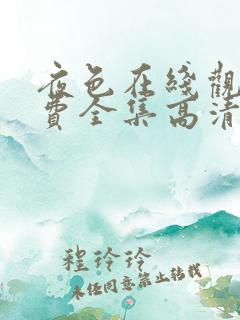 夜色在綫觀
費全集高清
程玲玲
未经同意禁止转载